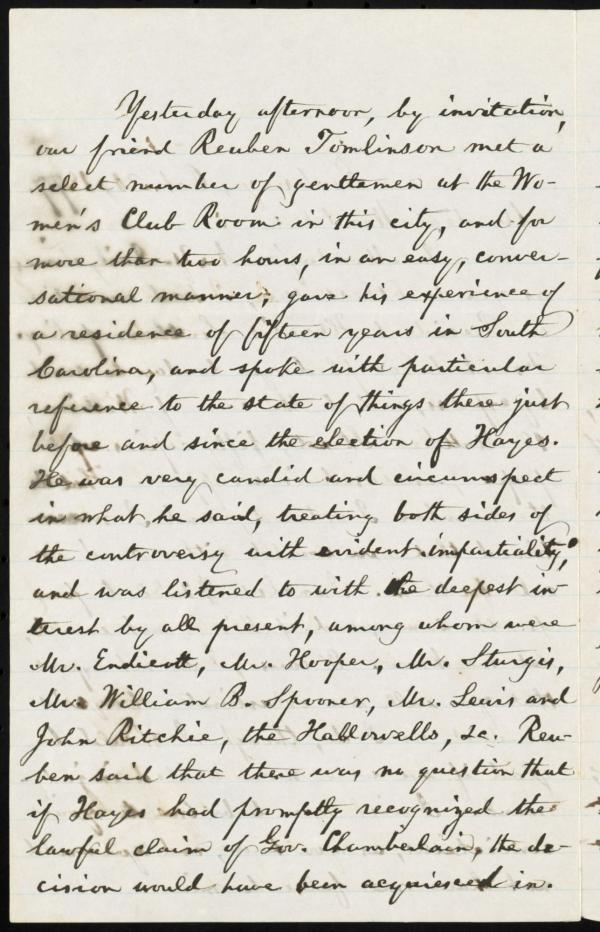 Yesterday afternoon, by invitation,
our friend Reuben Tomlinson met a
select number of gentlemen at the Wo-
men's Club Room in this city, and for
more than two hours, in an easy, conver-
sational manner, gave his experience of
a residence of fifteen years in South
Carolina, and spoke with particular
reference to the state of things there just
before and since the election of Hayes.
He was very candid and circumspect
in what he said, treating both sides of
the controversy with evident impartiality,
and was listened to with the deepest in-
terest by all present, among whom were
Mr. Endicott, Mr. Hooper, Mr. Sturgis,
Mr. William B. Spooner, Mr. Lewis and
John Ritchie, the Hallowells, &c. Reu-
ben said that there was no question that
if Hayes had promptly recognized the
lawful claim of Gov. Chamberlain, the de-
cision would have been acquiesced in.